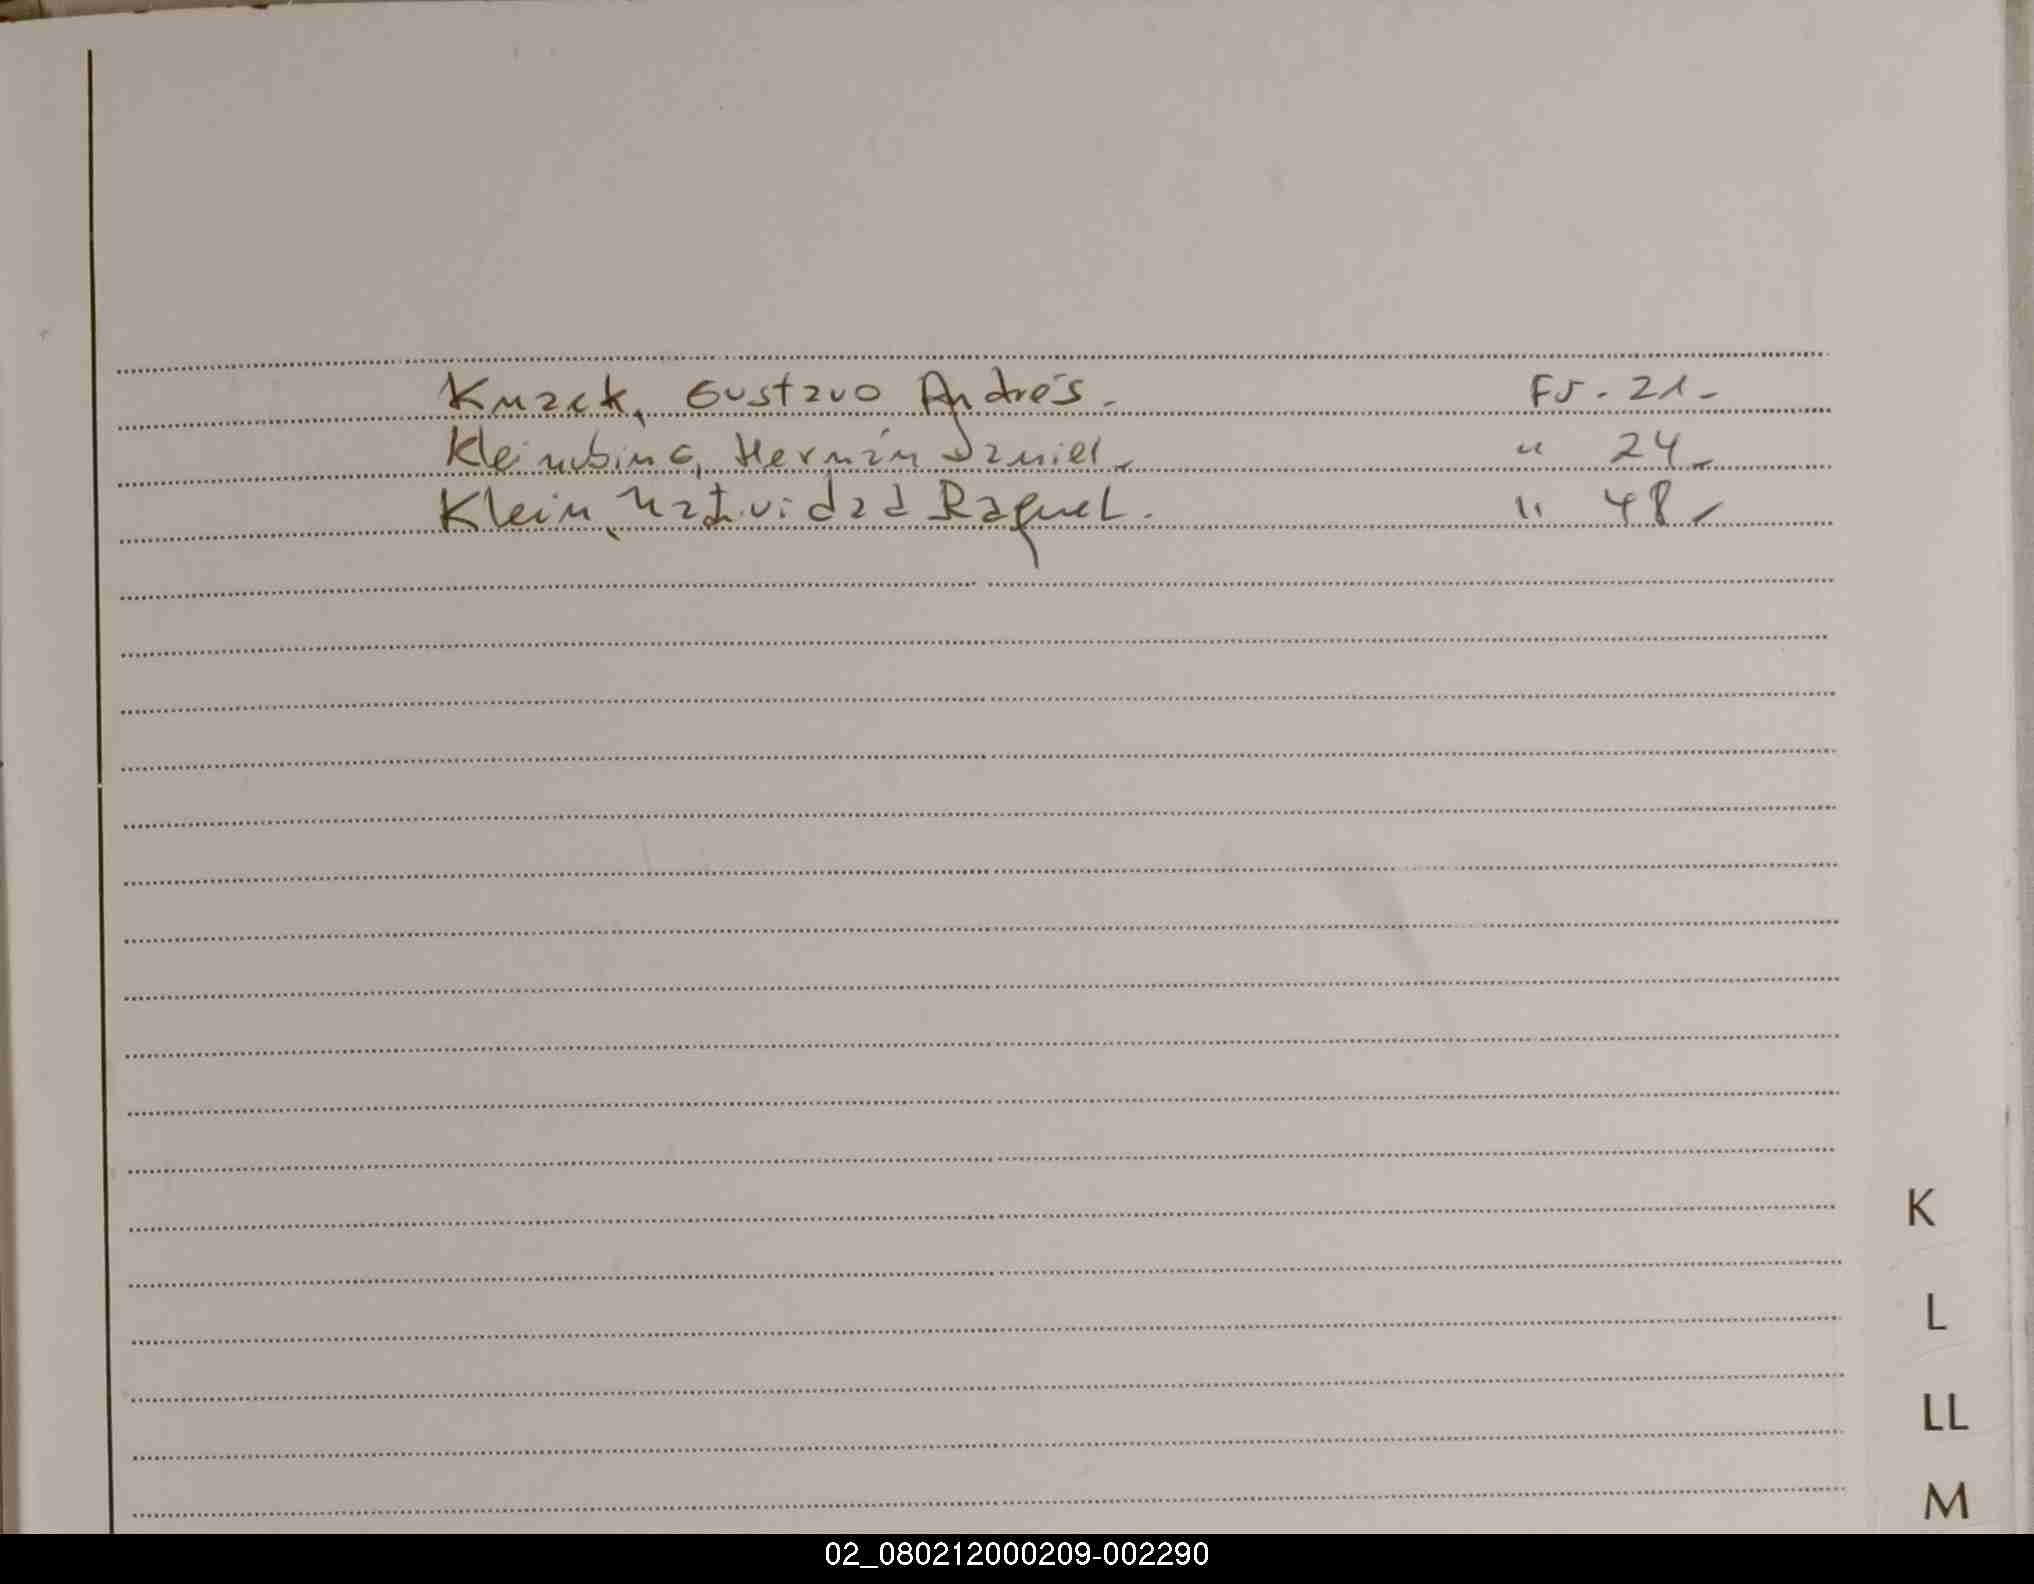 Knack, Gustavo Andrés. Fs. 21-
Kleinubing, Hernán Daniel. " 24-
Klein, Natividad Raquel. " 48-
K
L
LL
M
02_080212000209-002290